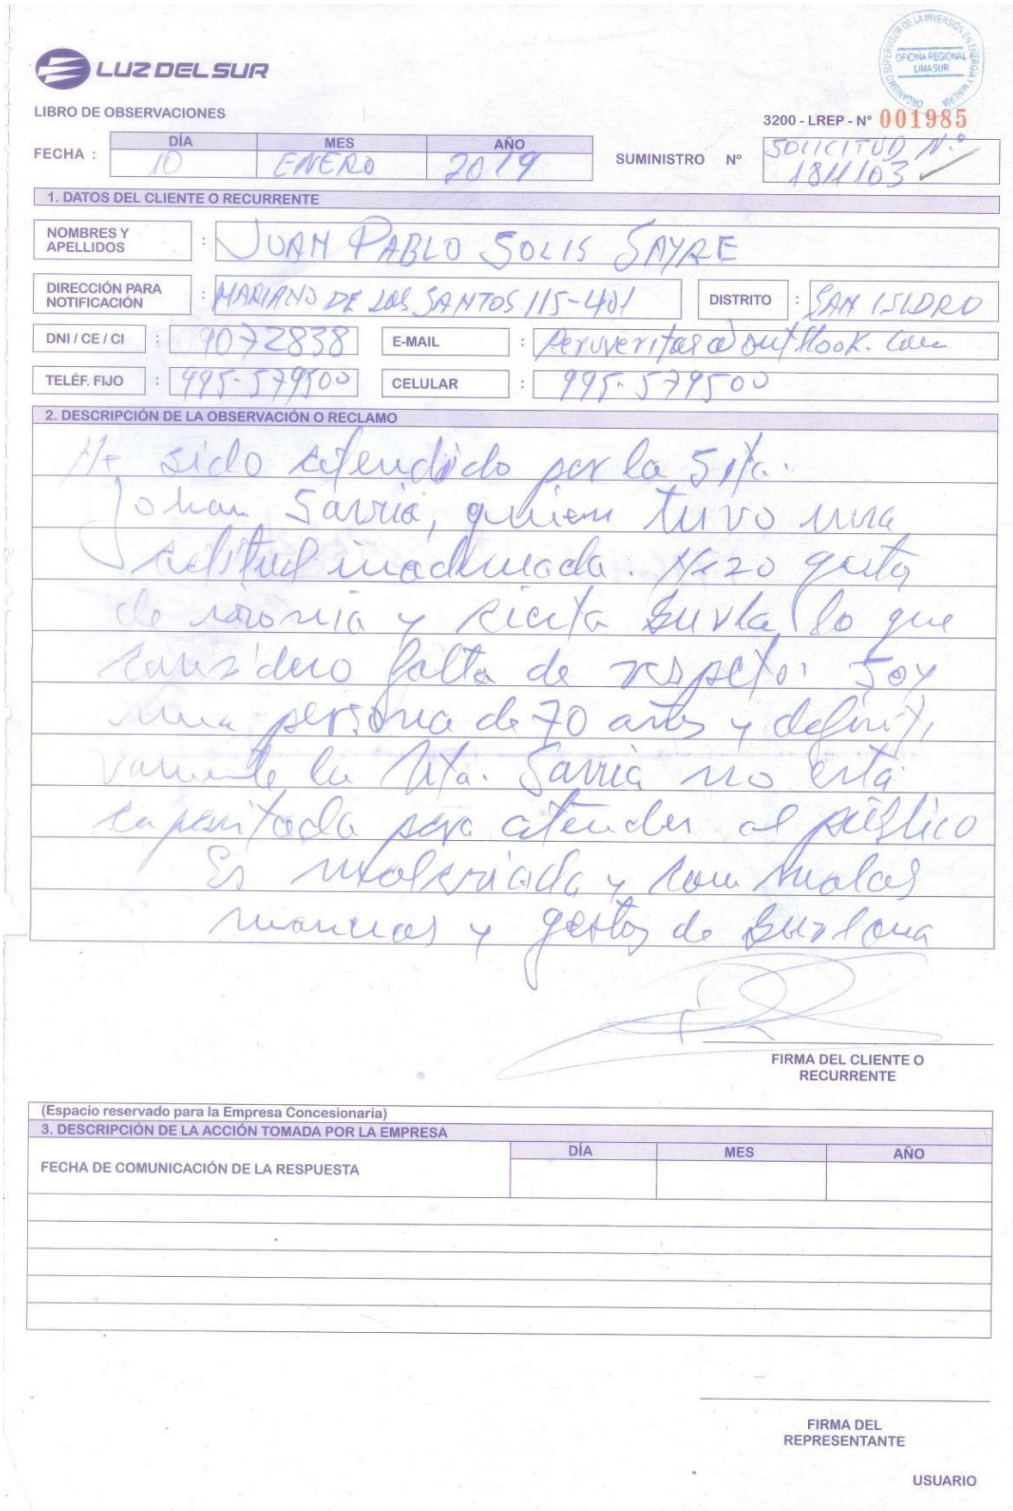 ORGANISMO SUPERVISOR DE LA INVERSIÓN EN ENERGÍA Y MINERÍA
OFICINA REGIONAL
LIMA SUR
LUZ DEL SUR
LIBRO DE OBSERVACIONES
3200 - LREP - Nº 001985
FECHA : DÍA MES AÑO
10 ENERO 2019
SUMINISTRO Nº SOLICITUD N.º
1811103
1. DATOS DEL CLIENTE O RECURRENTE
NOMBRES Y
APELLIDOS : JUAN PABLO SOLIS SAYRE
DIRECCIÓN PARA
NOTIFICACIÓN : MARIANO DE LOS SANTOS 115-401 DISTRITO : SAN ISIDRO
DNI / CE / CI : 9072838 E-MAIL : Peruveritas@outlook.com
TELÉF. FIJO : 995-579500 CELULAR : 995-579500
2. DESCRIPCIÓN DE LA OBSERVACIÓN O RECLAMO
He sido atendido por la Srta.
Johan Sarria, quien tuvo una
actitud inadecuada. Hizo gesto
de ironia y cierta burla, lo que
considero falta de respeto. Soy
una persona de 70 años y definiti
vamente la Srta. Sarria no está
capacitada para atender al público
Es malcriada y con malas
maneras y gestos de burlona
FIRMA DEL CLIENTE O
RECURRENTE
(Espacio reservado para la Empresa Concesionaria)
3. DESCRIPCIÓN DE LA ACCIÓN TOMADA POR LA EMPRESA
FECHA DE COMUNICACIÓN DE LA RESPUESTA DÍA MES AÑO
FIRMA DEL
REPRESENTANTE
USUARIO